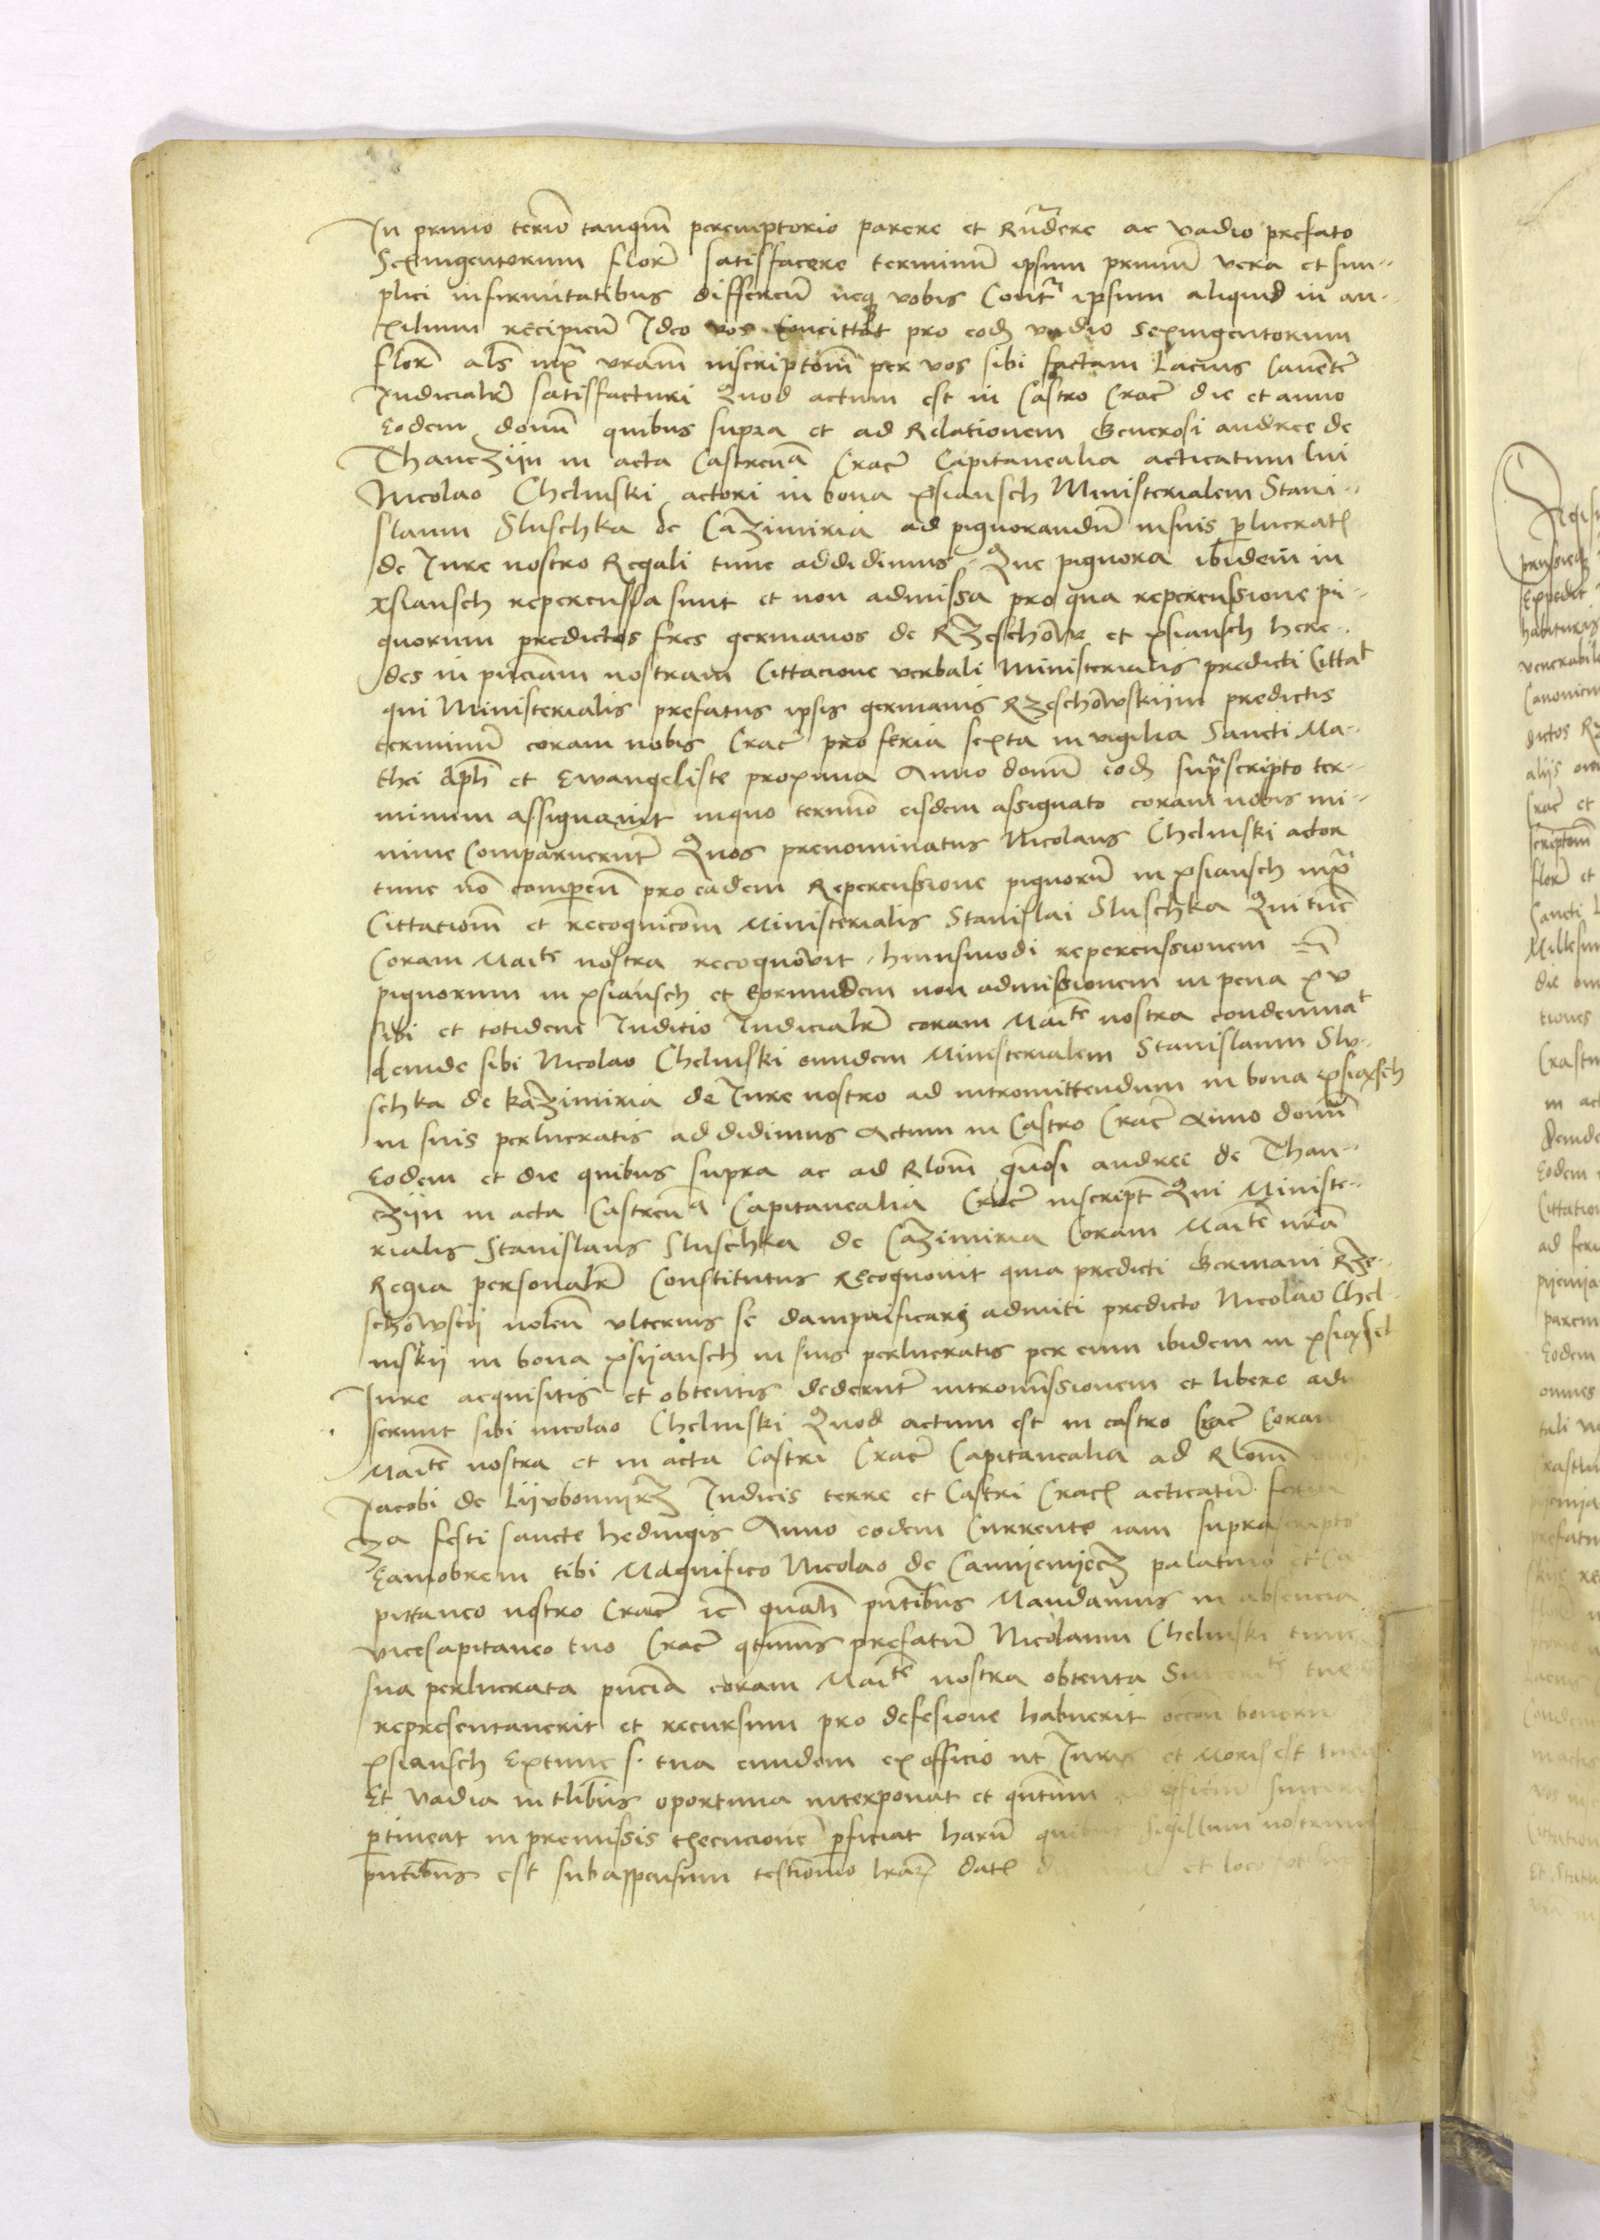 In primo termō tanqm̄ peremptorio parere et Rn̄dere ac vadio prefato
Sexingentorum florē satisfacere terminū ipsum primū vera et sim-
plici infirmitatibus differeñ neq vobis Contra ipsum aliquid in au-
xilium recipieñ Ideo vos Concittat pro eod vadio sexingentorum
florē als iuxa vram̄ inscriptom̄ per vos sibi factam Lacius Caventē
Iudicialr̄ satisfacturi Quod actum est in Castro Cracē die et anno
Eodem domī quibus supra et ad Relationem Generosi andree de
Thanczijn in acta Castreñā Cracē Capitanealia acticatum
Nicolao Chelmski actori in bona Xsiansch Ministerialem Stani-
slaum Sluschka de Cazimiria ad pignorandū in suis p̄lucrat
de Iure nostro Regali tunc addidimus Que pignora ibidem in
xsiansch repercussa sunt et non admissa pro qua repercussione pi-
gnorum predictos fres germanos de Rzeschōw et xsiansch here-
des in pn̄ciam̄ nostram Cittacione verbali Ministerialis predicti Cittat
qui Ministerialis prefatus ipsis germanis Rzeschōwskijm predictis
terminū coram nobis Cracē pro feria sexta in vigilia Sancti Ma-
thei Apli et Ewangeliste proxima Anno domī eod suprascripto ter-
minum assignavit in quo termino eisdem assignato coram nobis mi-
nime Comparuerunt̄ Quos prenominatus Nicolaus Chelmski actor
tunc nō compeñ pro eadem Repercussione pignorū in xsiansch iuxa
Cittatiom̄ et recognicōm Ministerialis Stanislai Sluschka Qui tūc
Coram Maite nostra recognōvit huiusmodi repercussionem
pignorum in xsiansch et Eorundem non admissionem in pena xv
sibi et totidem Iuditio Iudicialr̄ coram Maite nostra condemnat
deinde sibi Nicolao Chelmski eundem Ministerialem Stanislaum Slu-
schka de Kazimiria de Iure nostro ad intromittendum in bona xsiansch
in suis perlucratis addidimus Actum in Castro Cracē Anno domī
Eodem et die quibus supra ac ad Rlom̄ gn̄osi andree de Than-
czijn in acta Castreñā Capitanealia Cracē inscript Qui Ministe-
rialis Stanislaus Sluschka de Cazimiria Coram Maite nrā
Regia personalr̄ Constitutus Recognovit quia predicti Germani Rze-
schōwscij noleñ ulterius se dampnificari admiti predicto Nicolao Chel-
mskij in bona xsijansch in suis perlucratis per eum ibidem in xsiansch
Iure acquisitis et obtentis dederunt̄ intromissionem et libere adm
serunt sibi nicolao Chelmski Quod actum est in castro Cracē Coram
Maite nostra et in acta Castri Cracē Capitanealia ad Rlom̄
Jacobi de Lijvbomijrz Iudicis terre et Castri Crac acticatū feria
za festi sancte hedwigis Anno eodem Currente iam suprascripto
Eamobrem tibi Magnifico Nicolao de Camijenijecz palatino et Ca
pittaneo nostro Cracē pn̄tibus Mandamus in absencia
vicecapitaneo tuo Cracē qtinus prefatū Nicolaum Chelmski
sua perlucrata pn̄cia coram Maite nostra obtenta tue
representaverit et recursum pro defesione habuerit occom̄ bonorum
xsiansch Extunc s. tua eundem ex officio ut Iuris et Moris est
Et vadia in tlibus oportuna interponat et qn̄tum officium
ptineat in premissis execucione pficiat harū quibus sigillum nostrum
pn̄tibus est subappensum testiōnio lrar̄ dat et loco